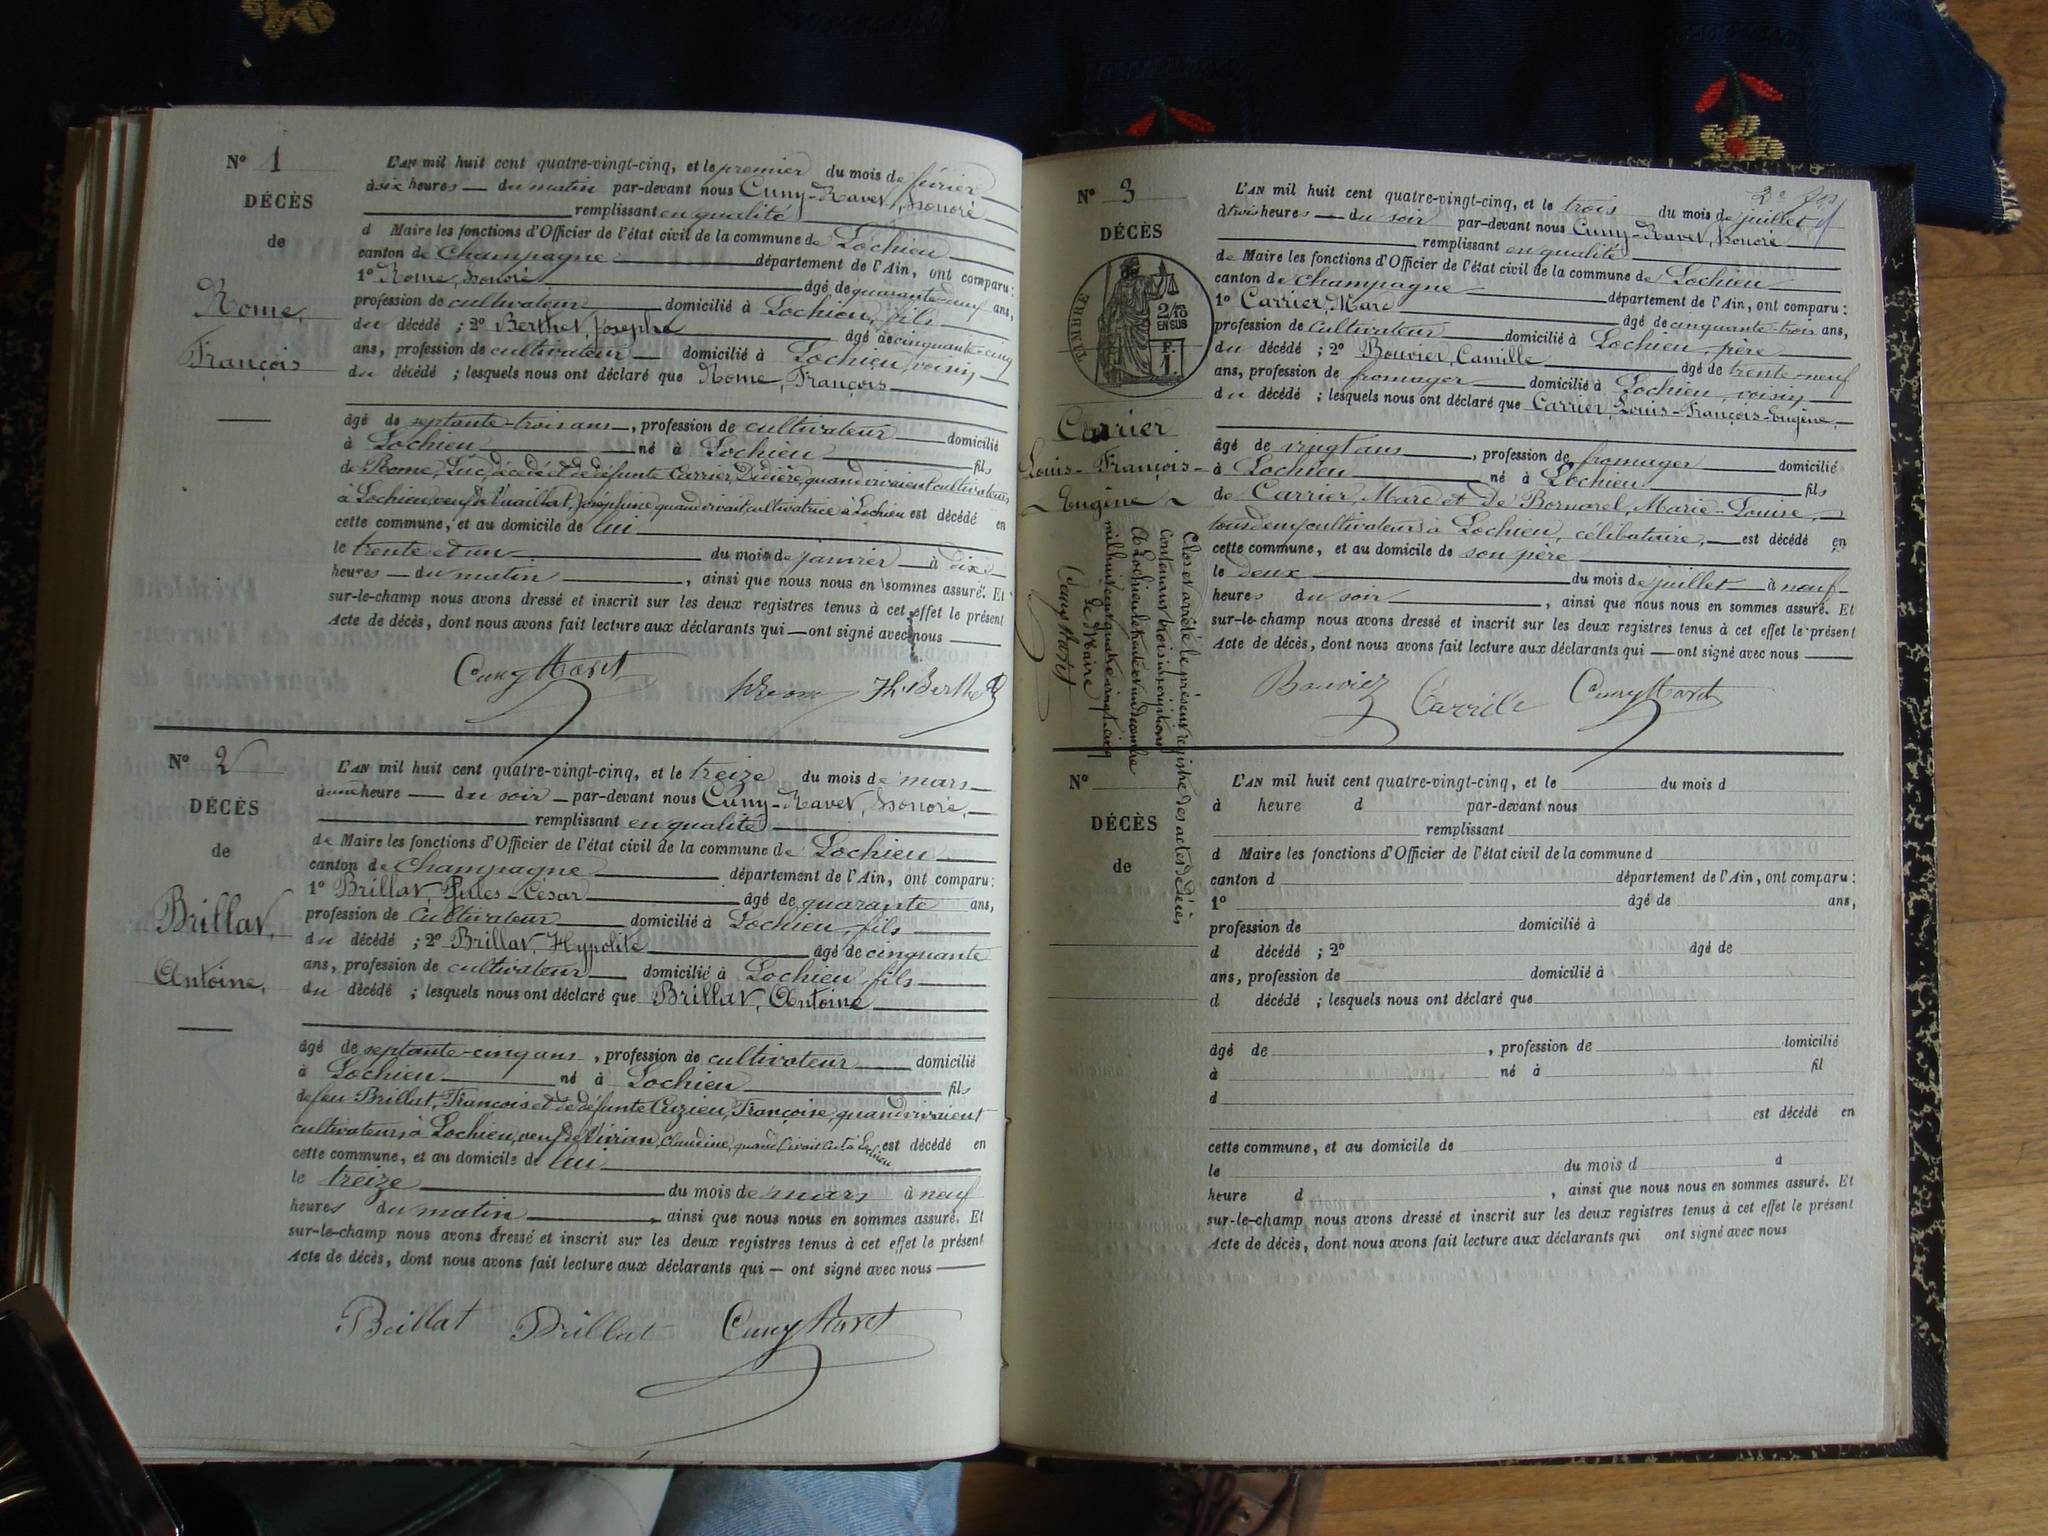 N° 1
DÉCÈS
de
Rome,
François
L'AN mil huit cent quatre-vingt-cinq, et le premier du mois de février
à six heures — du matin par-devant nous Cuny-Ravet, honoré
remplissant en qualité
d Maire les fonctions d'Officier de l'état civil de la commune de Lochieu
canton de Champagne département de l'Ain, ont comparu :
1° Rome, honoré âgé de quarante-neuf ans,
profession de cultivateur domicilié à Lochieu, fils
du décédé ; 2° Berthet, Josephe âgé de cinquante-cinq
ans, profession de cultivateur domicilié à Lochieu, voisin
du décédé ; lesquels nous ont déclaré que Rome, François
âgé de septante-trois ans, profession de cultivateur domicilié
à Lochieu né à Lochieu fils
de Rome, Luc, décédé et de défunte Carrier, Didière, quand vivaient cultivateurs
à Lochieu, veuf de Joséphine quand vivait cultivatrice à Lochieu est décédé en
cette commune, et au domicile de lui
le trente et un du mois de janvier à dix
heures — du matin, ainsi que nous nous en sommes assuré. Et
sur-le-champ nous avons dressé et inscrit sur les deux registres tenus à cet effet le présent
Acte de décès, dont nous avons fait lecture aux déclarants qui — ont signé avec nous
Cuny Ravet Rome Jh Berthet
N° 2
DÉCÈS
de
Brillat,
Antoine,
L'AN mil huit cent quatre-vingt-cinq, et le treize du mois de mars
à une heure — du soir — par-devant nous Cuny-Ravet, honoré,
remplissant en qualité
de Maire les fonctions d'Officier de l'état civil de la commune de Lochieu
canton de Champagne département de l'Ain, ont comparu :
1° Brillat, Jules-César âgé de quarante ans,
profession de cultivateur domicilié à Lochieu, fils
du décédé ; 2° Brillat, Hypolite âgé de cinquante
ans, profession de cultivateur domicilié à Lochieu, fils
du décédé ; lesquels nous ont déclaré que Brillat, Antoine
âgé de septante-cinq ans, profession de cultivateur domicilié
à Lochieu né à Lochieu fils
de feu Brillat, François et de défunte Cuzieu, Françoise, quand vivaient
cultivateurs à Lochieu, veuf de Vivian, Claudine, quand vivait cult. à Lochieu est décédé en
cette commune, et au domicile de lui
le treize du mois de mars à neuf
heures du matin ainsi que nous nous en sommes assuré. Et
sur-le-champ nous avons dressé et inscrit sur les deux registres tenus à cet effet le présent
Acte de décès, dont nous avons fait lecture aux déclarants qui — ont signé avec nous
Brillat Brillat Cuny Ravet
N° 3
DÉCÈS
TIMBRE
2/10
EN SUS
F.
1.
Carrier
Louis-François-
Eugène
L'AN mil huit cent quatre-vingt-cinq, et le trois du mois de juillet
à trois heures — du soir par-devant nous Cuny-Ravet, honoré
remplissant en qualité
de Maire les fonctions d'Officier de l'état civil de la commune de Lochieu
canton de Champagne département de l'Ain, ont comparu :
1° Carrier, Marc âgé de cinquante-trois ans,
profession de cultivateur domicilié à Lochieu, père
du décédé ; 2° Bouvier, Camille âgé de trente-neuf
ans, profession de fromager domicilié à Lochieu, voisin
du décédé ; lesquels nous ont déclaré que Carrier, Louis-François-Eugène,
âgé de vingt ans, profession de fromager domicilié
à Lochieu né à Lochieu fils
de Carrier, Marc et de Bornarel, Marie-Louise,
tous deux cultivateurs à Lochieu, célibataire, est décédé en
cette commune, et au domicile de son père
le deux du mois de juillet à neuf
heures du soir, ainsi que nous nous en sommes assuré. Et
sur-le-champ nous avons dressé et inscrit sur les deux registres tenus à cet effet le présent
Acte de décès, dont nous avons fait lecture aux déclarants qui — ont signé avec nous
Bouvier Carrier Cuny Ravet
Clos et arrêté le présent registre des actes de décès,
contenant trois inscriptions
A Lochieu le trente et un décembre
mil huit cent quatre vingt cinq
Le Maire
Cuny Ravet
N°
DÉCÈS
de
L'AN mil huit cent quatre-vingt-cinq, et le du mois d
à heure d par-devant nous
remplissant
d Maire les fonctions d'Officier de l'état civil de la commune d
canton d département de l'Ain, ont comparu :
1° âgé de ans,
profession de domicilié à
d décédé ; 2° âgé de
ans, profession de domicilié à
d décédé ; lesquels nous ont déclaré que
âgé de , profession de domicilié
à né à fil
d
est décédé en
cette commune, et au domicile de
le du mois d à
heure d , ainsi que nous nous en sommes assuré. Et
sur-le-champ nous avons dressé et inscrit sur les deux registres tenus à cet effet le présent
Acte de décès, dont nous avons fait lecture aux déclarants qui ont signé avec nous